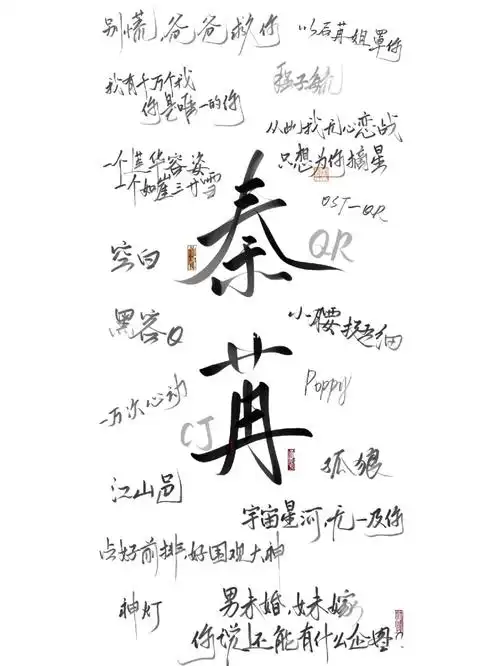 别慌,爸爸救你
以后苒姐罩你
我有千万个我
你是唯一的你
程子毓
从此我无心恋战
只想为你摘星
一个荣华容姿
一个如崖三寸雪
OST-QR
秦
QR
空白
黑客Q
小腰挺细
苒
CJ
一万次心动
Poppy
孤狼
江山邑
宇宙星河,无一及你
点好前排,好围观大神
神灯
男未婚,女未嫁
你说还能有什么企图?